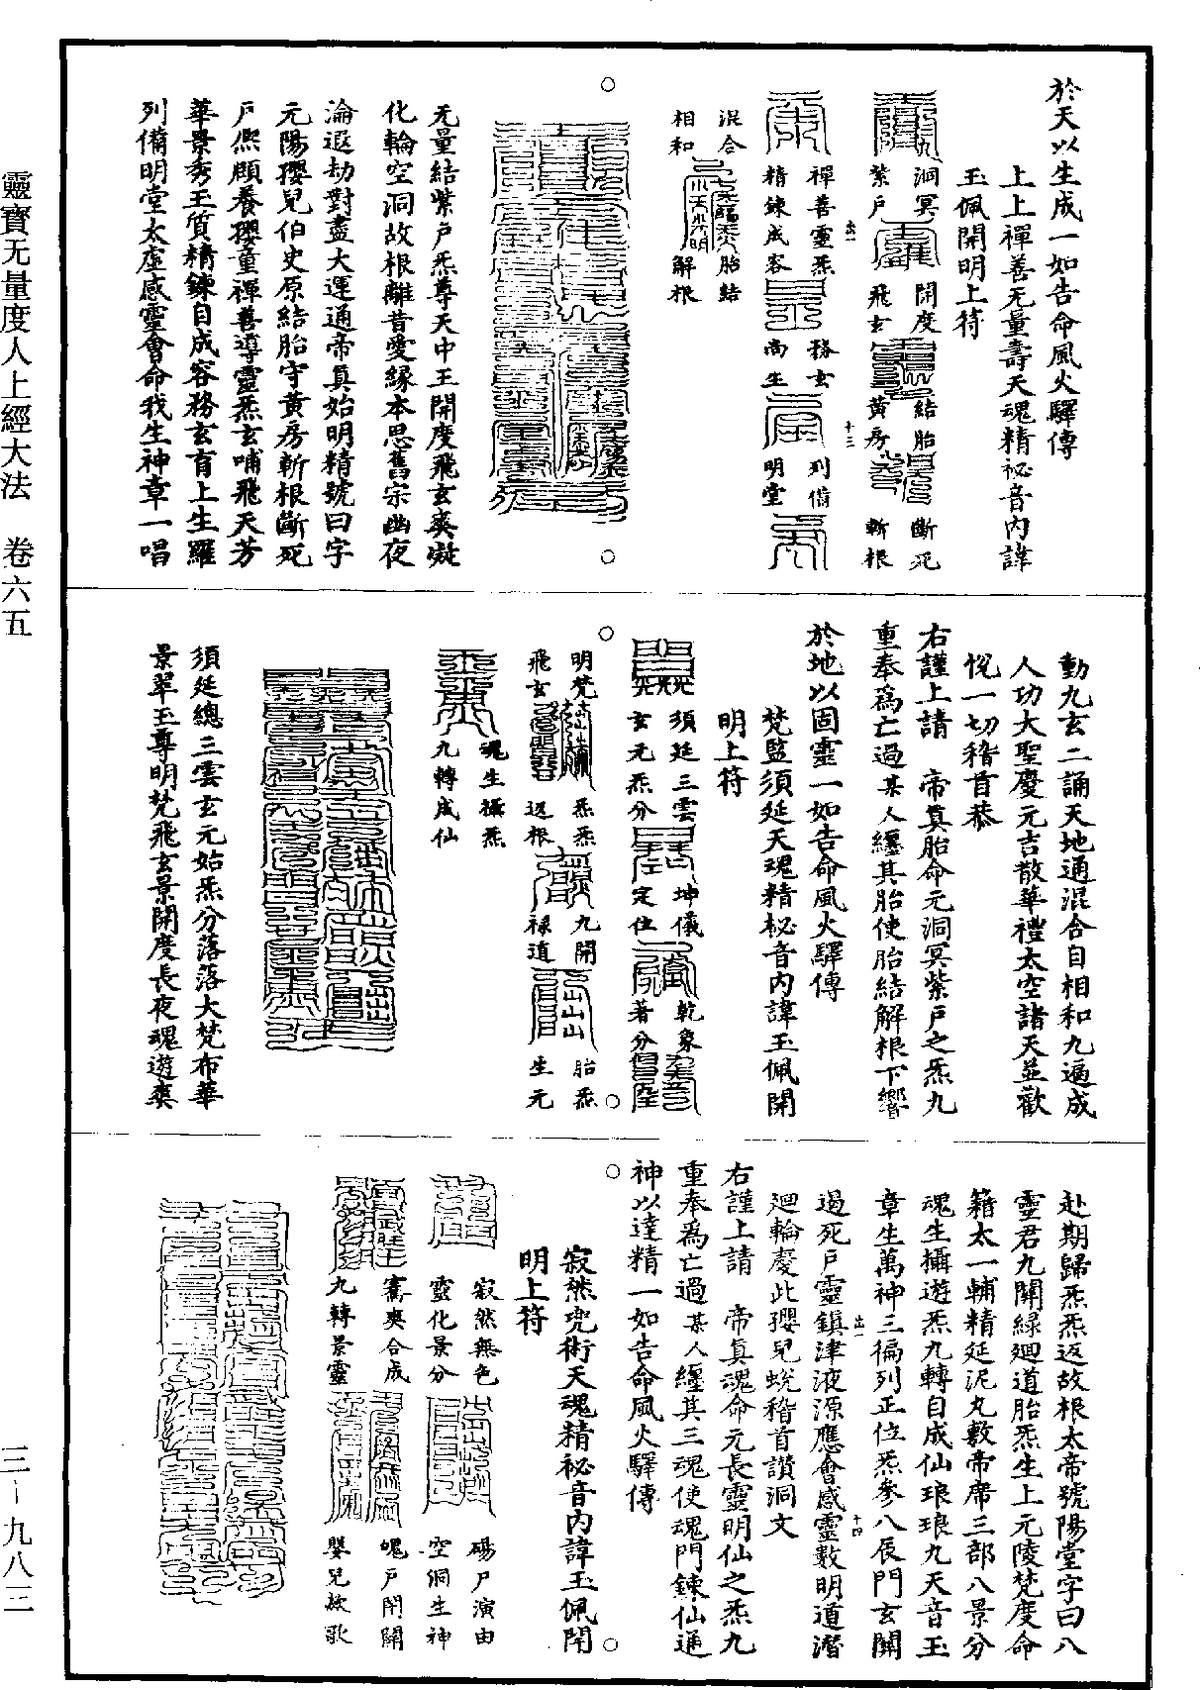 靈寶无量度人上經大法　卷六五
三—九八三
於天以生成一如告命風火驛傳
上上禪善无量壽天魂精祕音內諱
玉佩開明上符
洞冥
紫戶
開度
飛玄
結胎
黃房
斷死
斬根
禪善靈炁
精鍊成容
務玄
尚生
列備
明堂
混合
相和
胎結
解根
无量結紫戶炁尊天中王開度飛玄爽凝
化輪空洞故根離昔愛緣本思舊宗幽夜
淪遐劫對盡大運通帝真始明精號曰字
元陽孾兒伯史原結胎守黃房斬根斷死
戶熙頤養孾童禪善導靈炁玄哺飛天芳
華景秀玉質精鍊自成容務玄育上生羅
列備明堂太虛感靈會命我生神章一唱
動九玄二誦天地通混合自相和九遍成
人功大聖慶元吉散華禮太空諸天並歡
悅一切稽首恭
右謹上請　帝真胎命元洞冥紫戶之炁九
重奉為亡過某人纏其胎使胎結解根下響
於地以固靈一如告命風火驛傳
梵監須延天魂精祕音內諱玉佩開
明上符
須延三雲
玄元炁分
坤儀
定位
乾象
著分
明梵
飛玄
炁炁
返根
九開
祿道
胎炁
生元
魂生攝炁
九轉成仙
須延總三雲玄元始炁分落落大梵布華
景翠玉尊明梵飛玄景開度長夜魂遊爽
赴期歸炁炁返故根太帝號陽堂字曰八
靈君九關緣廻道胎炁生上元陵梵度命
籍太一輔精延泥丸敷帝席三部八景分
魂生攝遊炁九轉自成仙琅琅九天音玉
章生萬神三徧列正位炁參八辰門玄關
過死戶靈鎮津液源應會感靈數明道潛
廻輪慶此孾兒蛻稽首讚洞文
右謹上請　帝真魂命元長靈明仙之炁九
重奉為亡過某人纏其三魂使魂門鍊仙通
神以達精一如告命風火驛傳
寂然兜術天魂精祕音內諱玉佩開
明上符
寂然無色
靈化景分
碭尸演由
空洞生神
騫爽合成
九轉景靈
魂戶開關
嬰兒歌